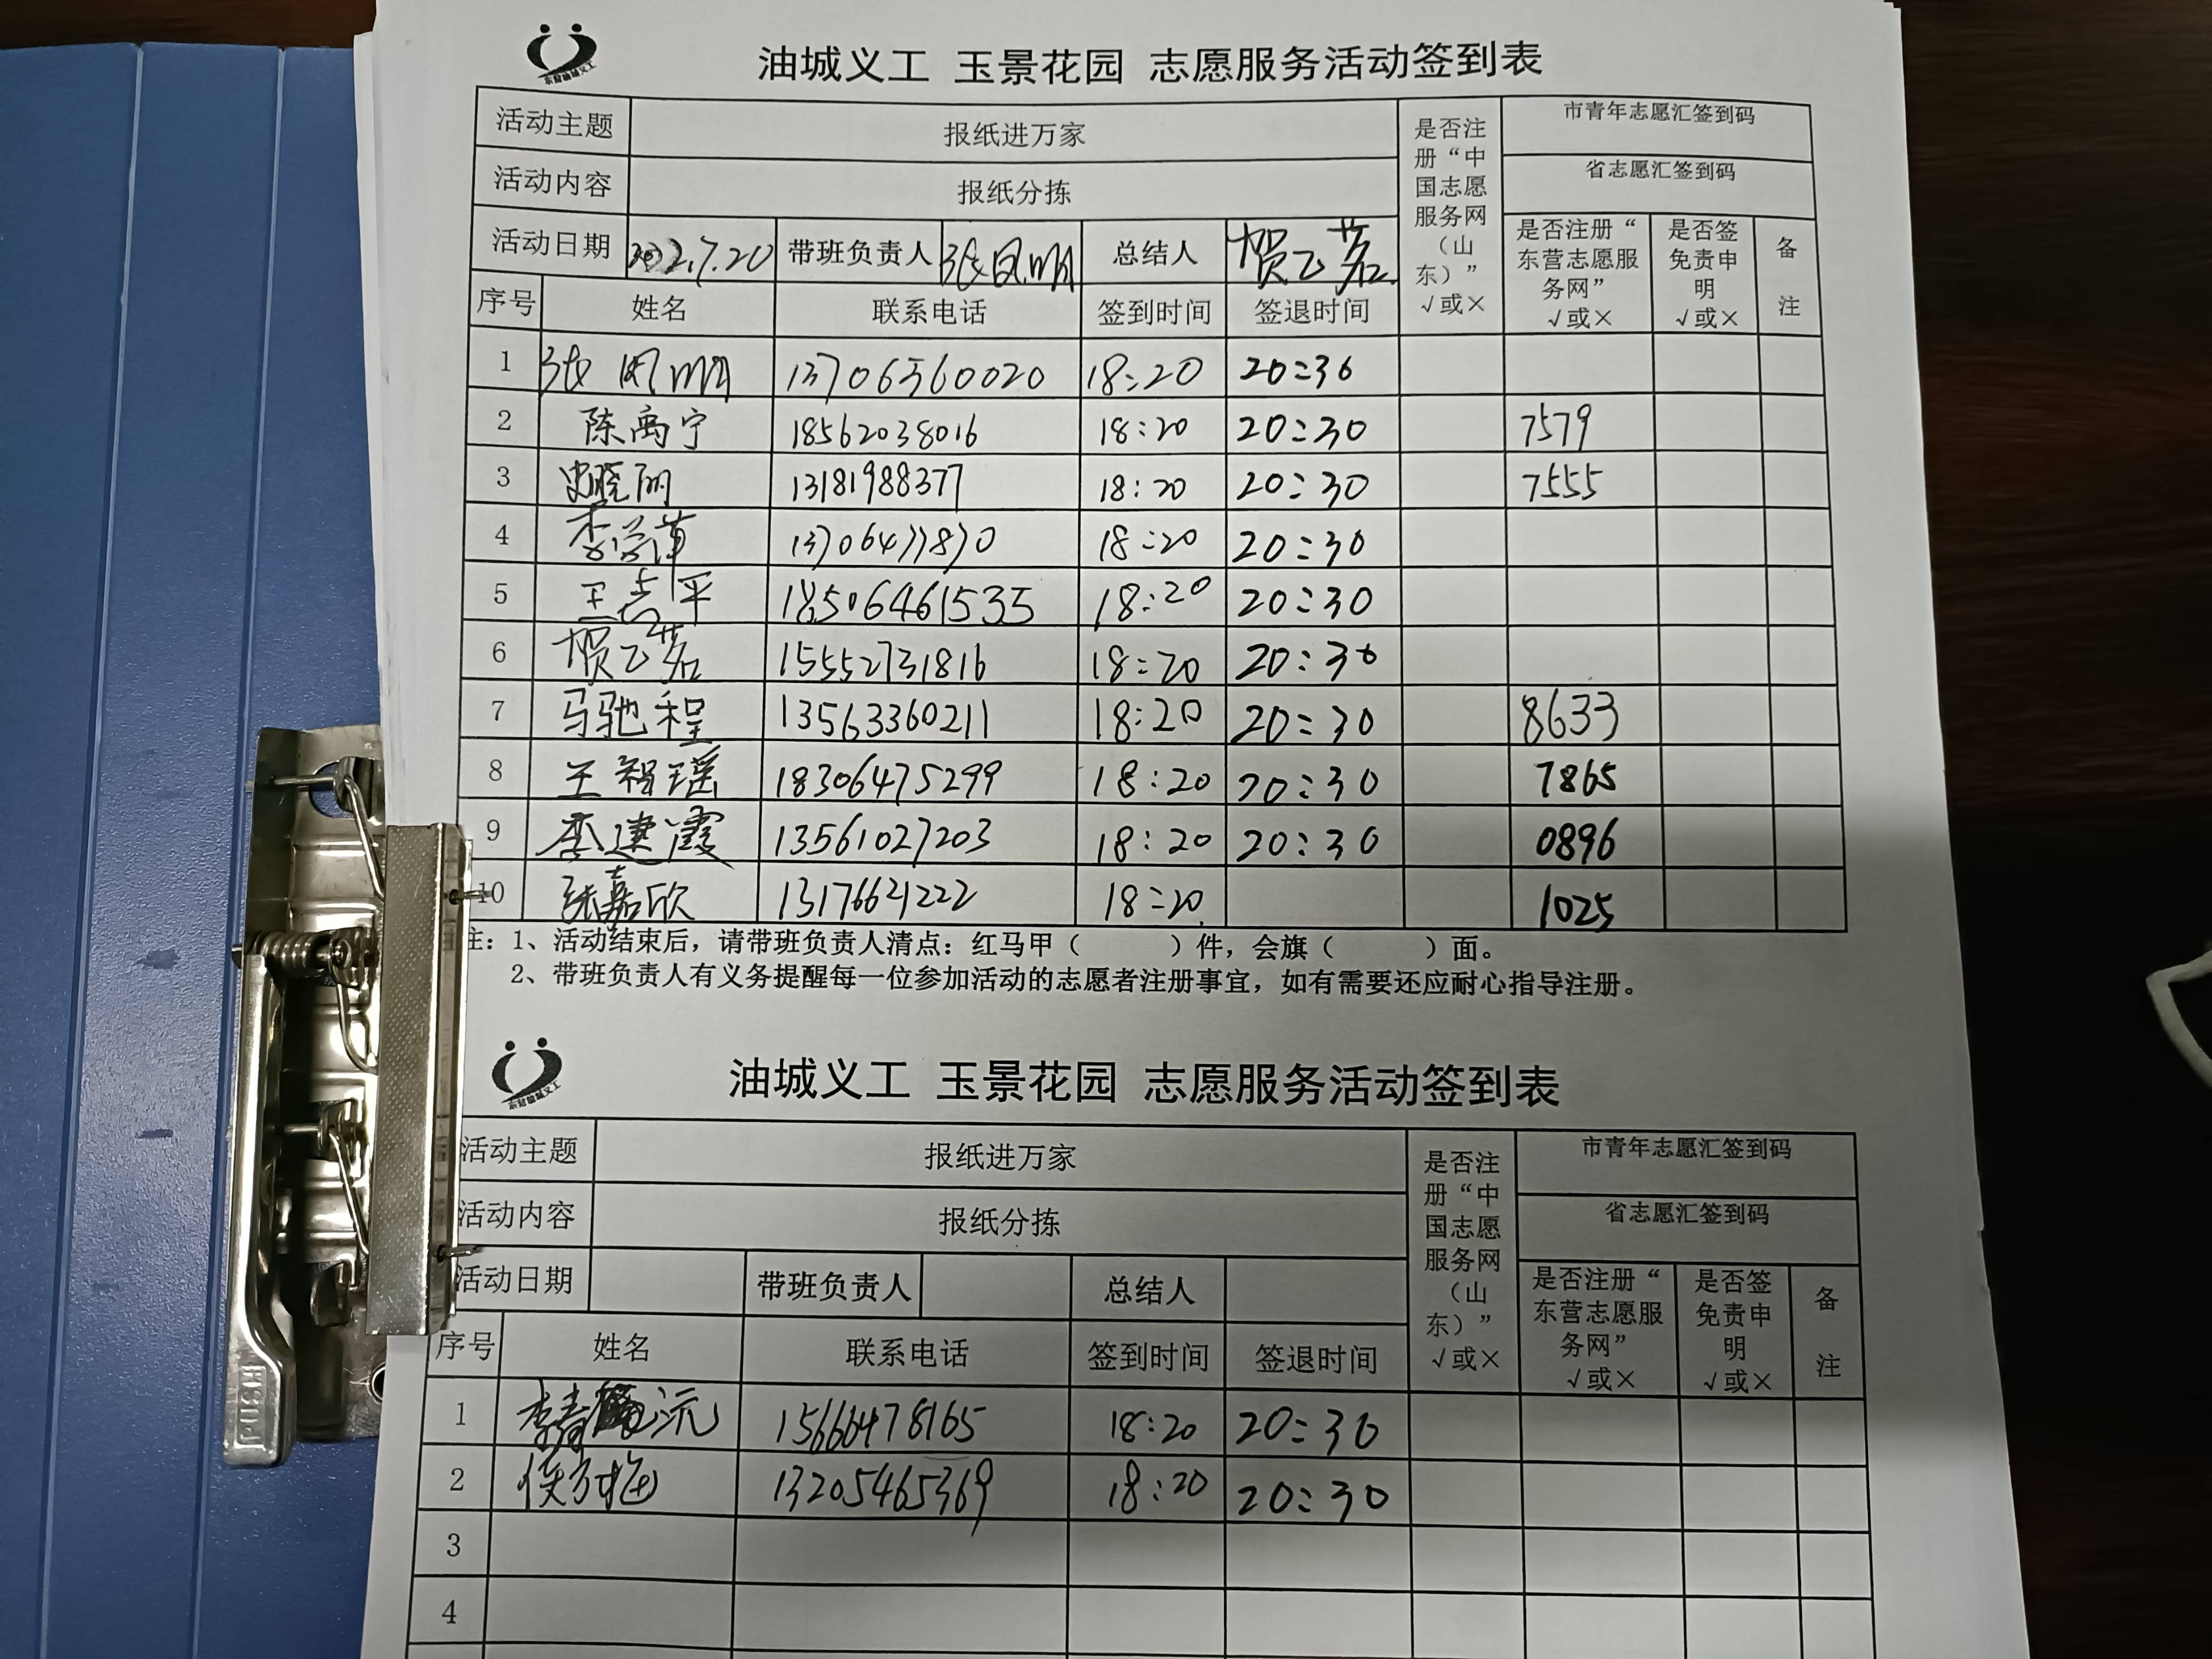 东营油城义工
油城义工 玉景花园 志愿服务活动签到表
活动主题 报纸进万家 是否注册“中国志愿服务网（山东）” √或× 市青年志愿汇签到码
活动内容 报纸分拣 省志愿汇签到码
活动日期 2022.7.20 带班负责人 张凤 总结人 贺飞茗 是否注册“东营志愿服务网” √或× 是否签免责申明 √或× 备注
序号 姓名 联系电话 签到时间 签退时间
1 张凤 13706360020 18:20 20:30
2 陈禹宁 18562038016 18:20 20:30 7579
3 史晓丽 13181988377 18:20 20:30 7555
4 李 13706477870 18:20 20:30
5 王 平 18506461535 18:20 20:30
6 贺飞茗 15552731816 18:20 20:30
7 马驰程 13563360211 18:20 20:30 8633
8 王智瑶 18306475299 18:20 20:30 7865
9 李建霞 13561027203 18:20 20:30 0896
10 张嘉欣 13176621222 18:20 1025
注：1、活动结束后，请带班负责人清点：红马甲（ ）件，会旗（ ）面。
2、带班负责人有义务提醒每一位参加活动的志愿者注册事宜，如有需要还应耐心指导注册。
东营油城义工
油城义工 玉景花园 志愿服务活动签到表
活动主题 报纸进万家 是否注册“中国志愿服务网（山东）” √或× 市青年志愿汇签到码
活动内容 报纸分拣 省志愿汇签到码
活动日期 带班负责人 总结人 是否注册“东营志愿服务网” √或× 是否签免责申明 √或× 备注
序号 姓名 联系电话 签到时间 签退时间
1 李 沅 15666478165 18:20 20:30
2 侯方梅 13205465369 18:20 20:30
3
4